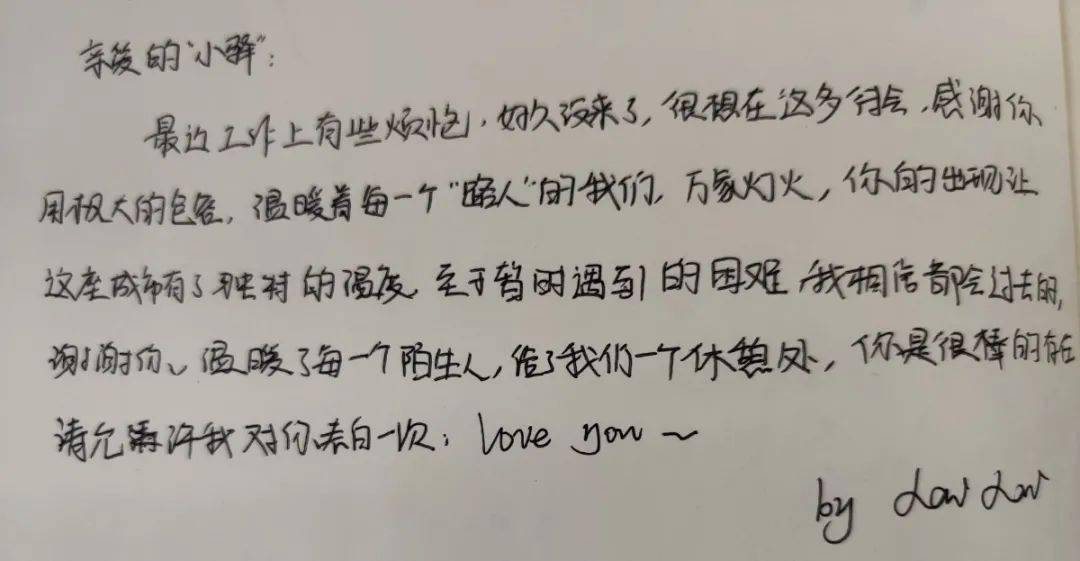 亲爱的“小驿”:
最近工作上有些烦恼,好久没来了,很想在这多待会,感谢你
用极大的包容,温暖着每一个“路人”的我们,万家灯火,你们的出现让
这座城市有了独特的温度,至于暂时遇到的困难,我相信都会过去的,
谢谢你、温暖了每一个陌生人,给了我们一个休憩处,你是很棒的存在
请允许我对你表白一次:love you ~
by